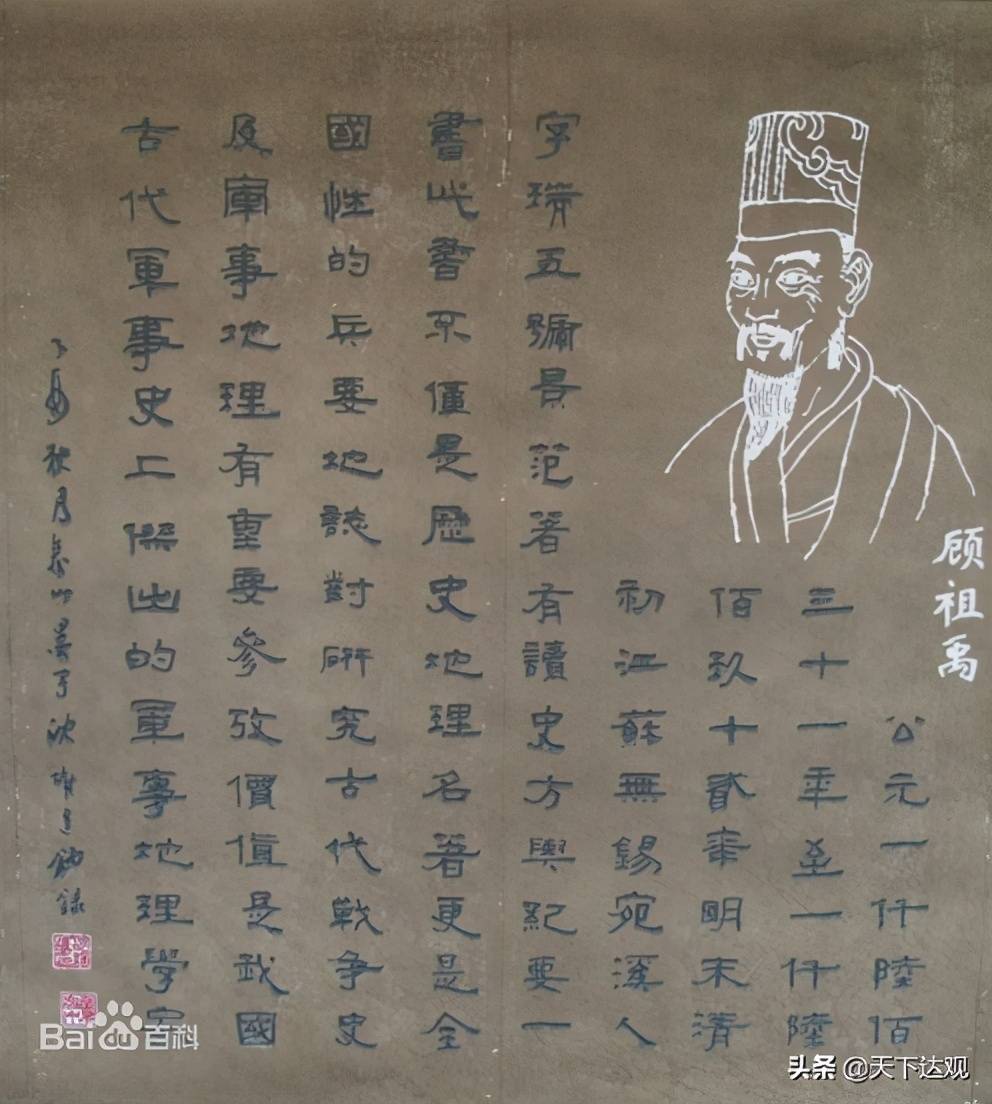 顾祖禹
公元一仟陸佰
三十一年至一仟陸
佰玖十貳年明末清
初江蘇無錫宛溪人
字瑞五號景范著有讀史方輿紀要一
書此書不僅是歷史地理名著更是全
國性的兵要地誌對研究古代戰争史
及軍事地理有重要參攷價值是我國
古代軍事史上傑出的軍事地理學家
秋月沈錄
Bai百科
头条 @天下达观